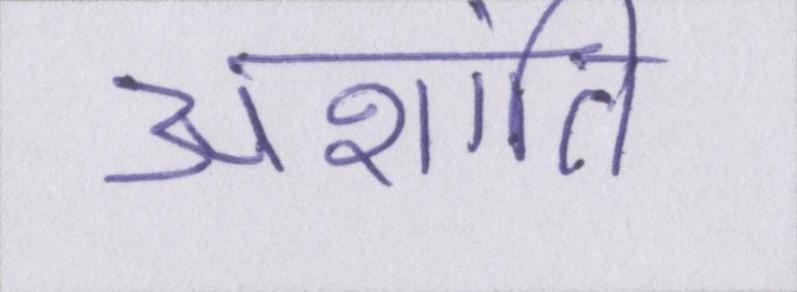 अशांति